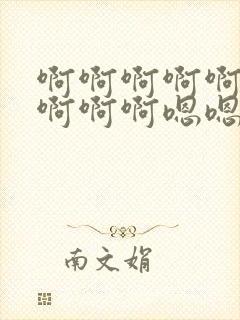 啊啊啊啊啊
啊啊啊嗯嗯
南文娟